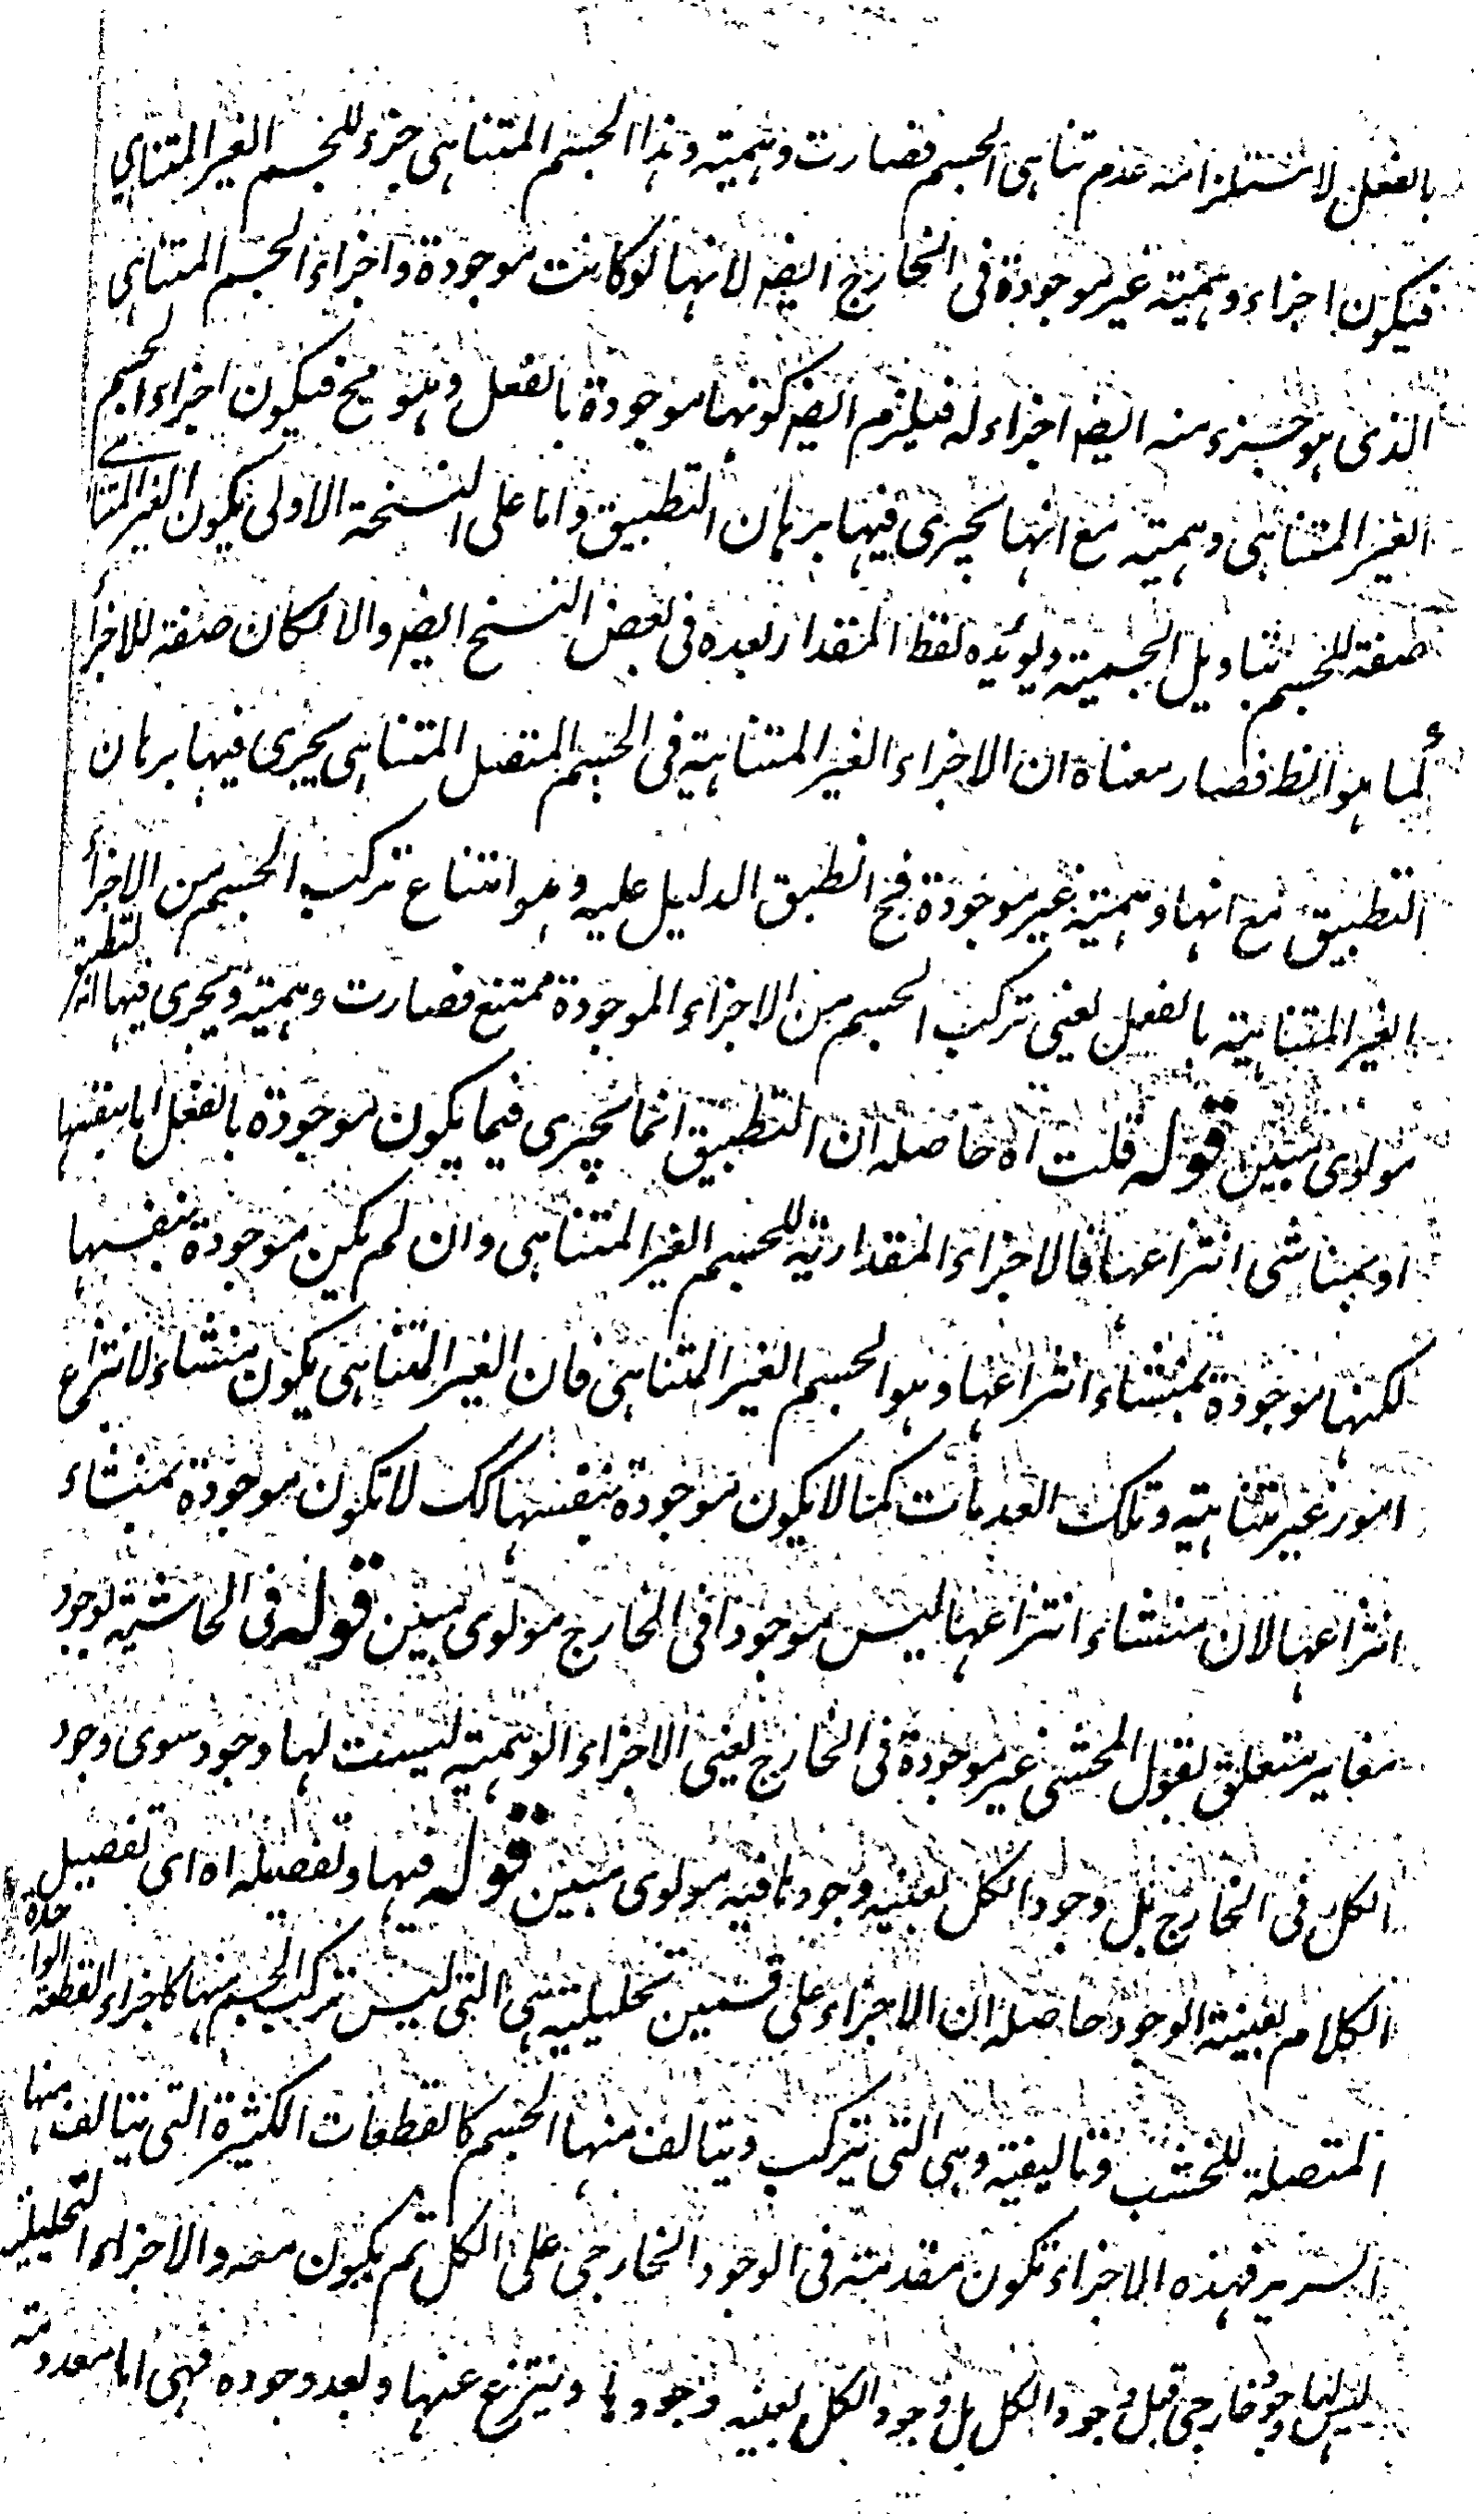 بالفعل لاستلزامه عدم تناهى الجسم فصارت وهمية وهذا الجسم المتناهى جزء للجسم الغير المتناهي
فيكون اجزاءه وهمية غير موجودة فى الخارج ايضا لانها لو كانت موجودة واجزاء الجسم المتناهى
الذى هو جزء منه ايضا اجزاء له فيلزم ايضا كونها موجودة بالفعل وهو مح فيكون اجزاء الجسم
الغير المتناهى وهمية مع انها يجرى فيها برهان التطبيق واما على النسخة الاولى يكون الغير المتناهى
صفة للجسم بتاويل الجسمية ويؤيده لفظ المقدار بعده فى بعض النسخ ايضا والا لكان صفة للاجزاء
كما هو الظ فصار معناه ان الاجزاء الغير المتناهية فى الجسم المتصل المتناهى يجرى فيها برهان
التطبيق مع انها وهمية غير موجودة فح انطبق الدليل عليه وهو امتناع تركب الجسم من الاجزاء
الغير المتناهية بالفعل يعنى تركب الجسم من الاجزاء الموجودة ممتنع فصارت وهمية ويجرى فيها التطبيق
مولوى مبين قوله قلت اه حاصله ان التطبيق انما يجرى فيما يكون موجودة بالفعل اما بنفسها
او بمناشى انتزاعها فالاجزاء المقدارية للجسم الغير المتناهى وان لم يكن موجودة بنفسها
لكنها موجودة بمنشاء انتزاعها وهو الجسم الغير المتناهى فان الغير المتناهى يكون منشاء لانتزاع
امور غير متناهية وتلك العدمات كما لا يكون موجودة بنفسها كك لا تكون موجودة بمنشاء
انتزاعها لان منشاء انتزاعها ليس موجودا فى الخارج مولوى مبين قوله فى الحاشية لوجود
مغاير متعلق بقول المحشى غير موجودة فى الخارج يعنى الاجزاء الوهمية ليست لها وجود سوى وجود
الكل فى الخارج بل وجود الكل بعينه وجود ما فيه مولوى مبين قوله فيها وتفصيله اه اى تفصيل
الكلام بعينية الوجود حاصله ان الاجزاء على قسمين تحليلية هى التى ليس تركب الجسم منها كاجزاء القطعة الواحدة
المتصلة للخشب وتاليفية وهى التى يتركب ويتالف منها الجسم كالقطعات الكثيرة التى يتالف منها
السرير فهذه الاجزاء تكون مقدمته فى الوجود الخارجى على الكل ثم يكون معه والاجزاء التحليلية
ليس لها وجود خارجى قبل وجود الكل بل وجود الكل بعينه وجودها وينتزع عنها وبعد وجوده فهى اما معدومة